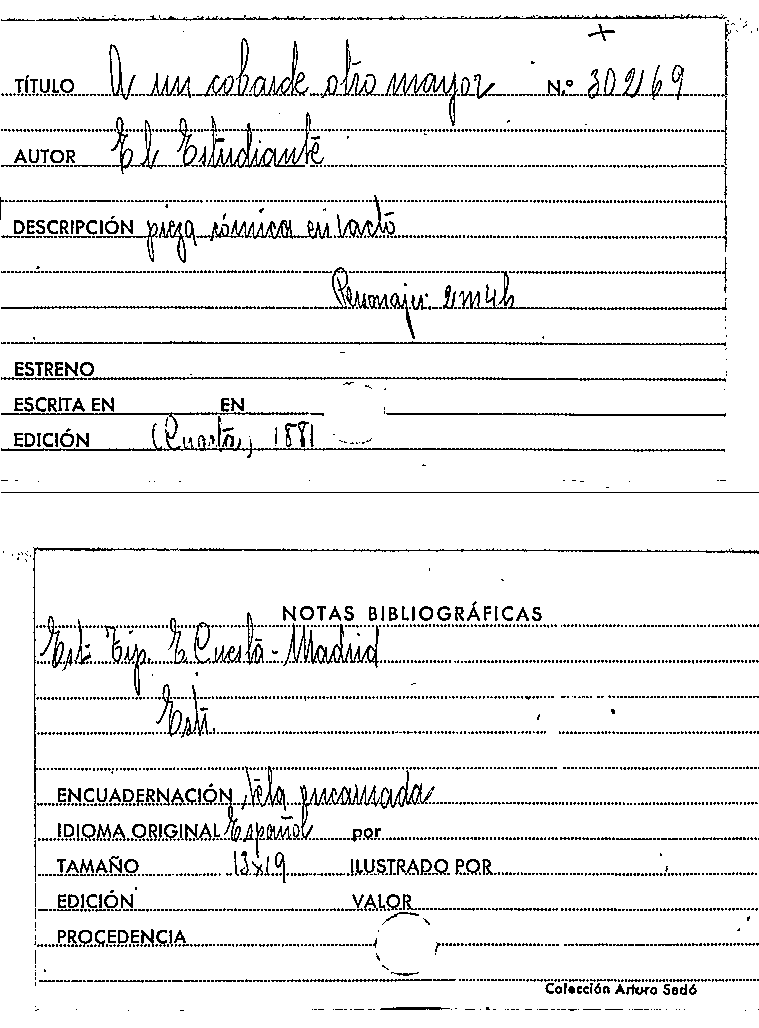 TÍTULO A un cobarde otro mayor N.º 302169
AUTOR El Estudiante
DESCRIPCIÓN pieza cómica en 1 acto
Personajes: 2 m 4 h
ESTRENO
ESCRITA EN EN
EDICIÓN (Cuarta) 1881
NOTAS BIBLIOGRÁFICAS
Est. Tip. E. Cuesta - Madrid
Est.
ENCUADERNACIÓN tela encarnada
IDIOMA ORIGINAL Español por
TAMAÑO 13x19 ILUSTRADO POR
EDICIÓN VALOR
PROCEDENCIA
Colección Arturo Sedó